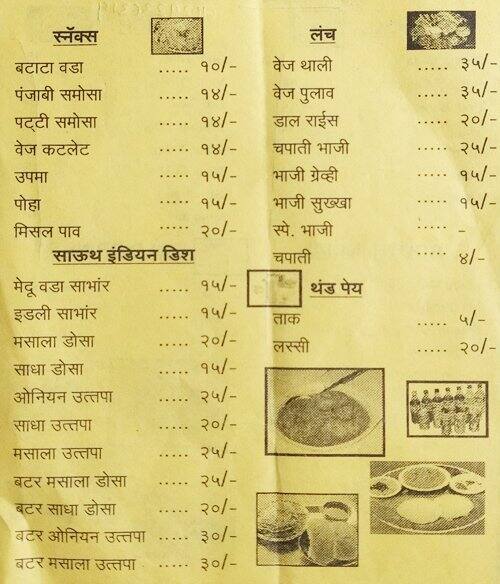 स्नॅक्स
बटाटा वडा ..... १०/-
पंजाबी समोसा ..... १४/-
पट्टी समोसा ..... १४/-
वेज कटलेट ..... १४/-
उपमा ..... १५/-
पोहा ..... १५/-
मिसल पाव ..... २०/-
साऊथ इंडियन डिश
मेदू वडा सांभार ..... १५/-
इडली सांभार ..... १५/-
मसाला डोसा ..... २०/-
साधा डोसा ..... १५/-
ओनियन उत्तपा ..... २५/-
साधा उत्तपा ..... २०/-
मसाला उत्तपा ..... २५/-
बटर मसाला डोसा ..... २५/-
बटर साधा डोसा ..... २०/-
बटर ओनियन उत्तपा ..... ३०/-
बटर मसाला उत्तपा ..... ३०/-
लंच
वेज थाली ..... ३५/-
वेज पुलाव ..... ३५/-
डाल राईस ..... २०/-
चपाती भाजी ..... २५/-
भाजी ग्रेव्ही ..... १५/-
भाजी सुख्खा ..... १५/-
स्पे. भाजी ..... -
चपाती ..... ४/-
थंड पेय
ताक ..... ५/-
लस्सी ..... २०/-